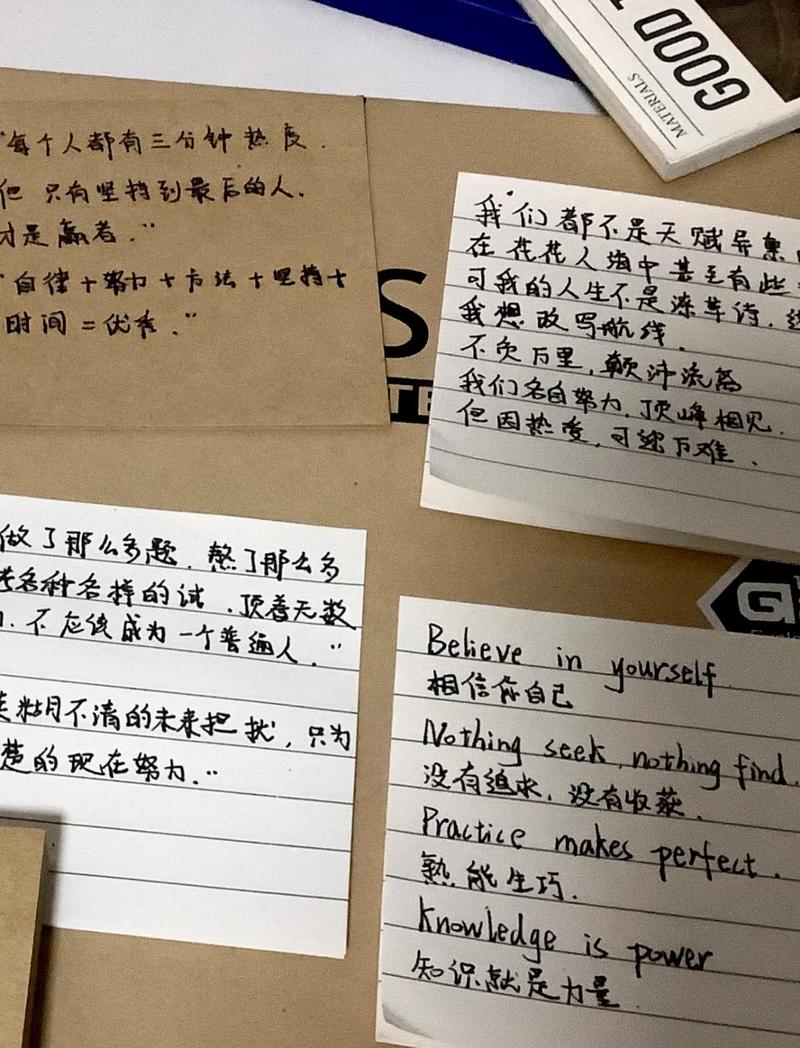 "每个人都有三分钟热度.
但只有坚持到最后的人.
才是赢者."
"自律+努力+方法+坚持+
时间=优秀."
GOOD
MATERIALS
我们都不是天赋异禀
在花花人海中甚至有些
可我的人生不是潦草诗.
我想改写航线.
不负万里,颠沛流离
我们各自努力,顶峰相见.
但因热爱,可迎万难.
做了那么多题.熬了那么多
考各种各样的试.顶着无数
不应该成为一个普通人."
不清的未来担忧,只为
楚的现在努力."
Believe in yourself
相信你自己
Nothing seek, nothing find.
没有追求,没有收获.
Practice makes perfect.
熟能生巧.
Knowledge is power
知识就是力量